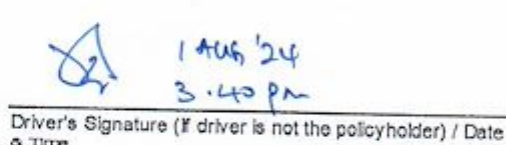 1 AUG '24
3.40 pm
Driver's Signature (If driver is not the policyholder) / Date
& Time